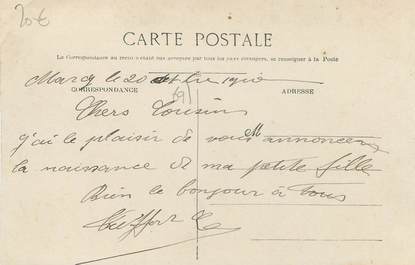 20€
CARTE POSTALE
La Correspondance au recto n'étant pas acceptée par tous les pays étrangers, se renseigner à la Poste
le 20 1910
CORRESPONDANCE ADRESSE
Chers Cousins
j'ai le plaisir de vous annoncer
la naissance de ma petite fille
Bien le bonjour à tous